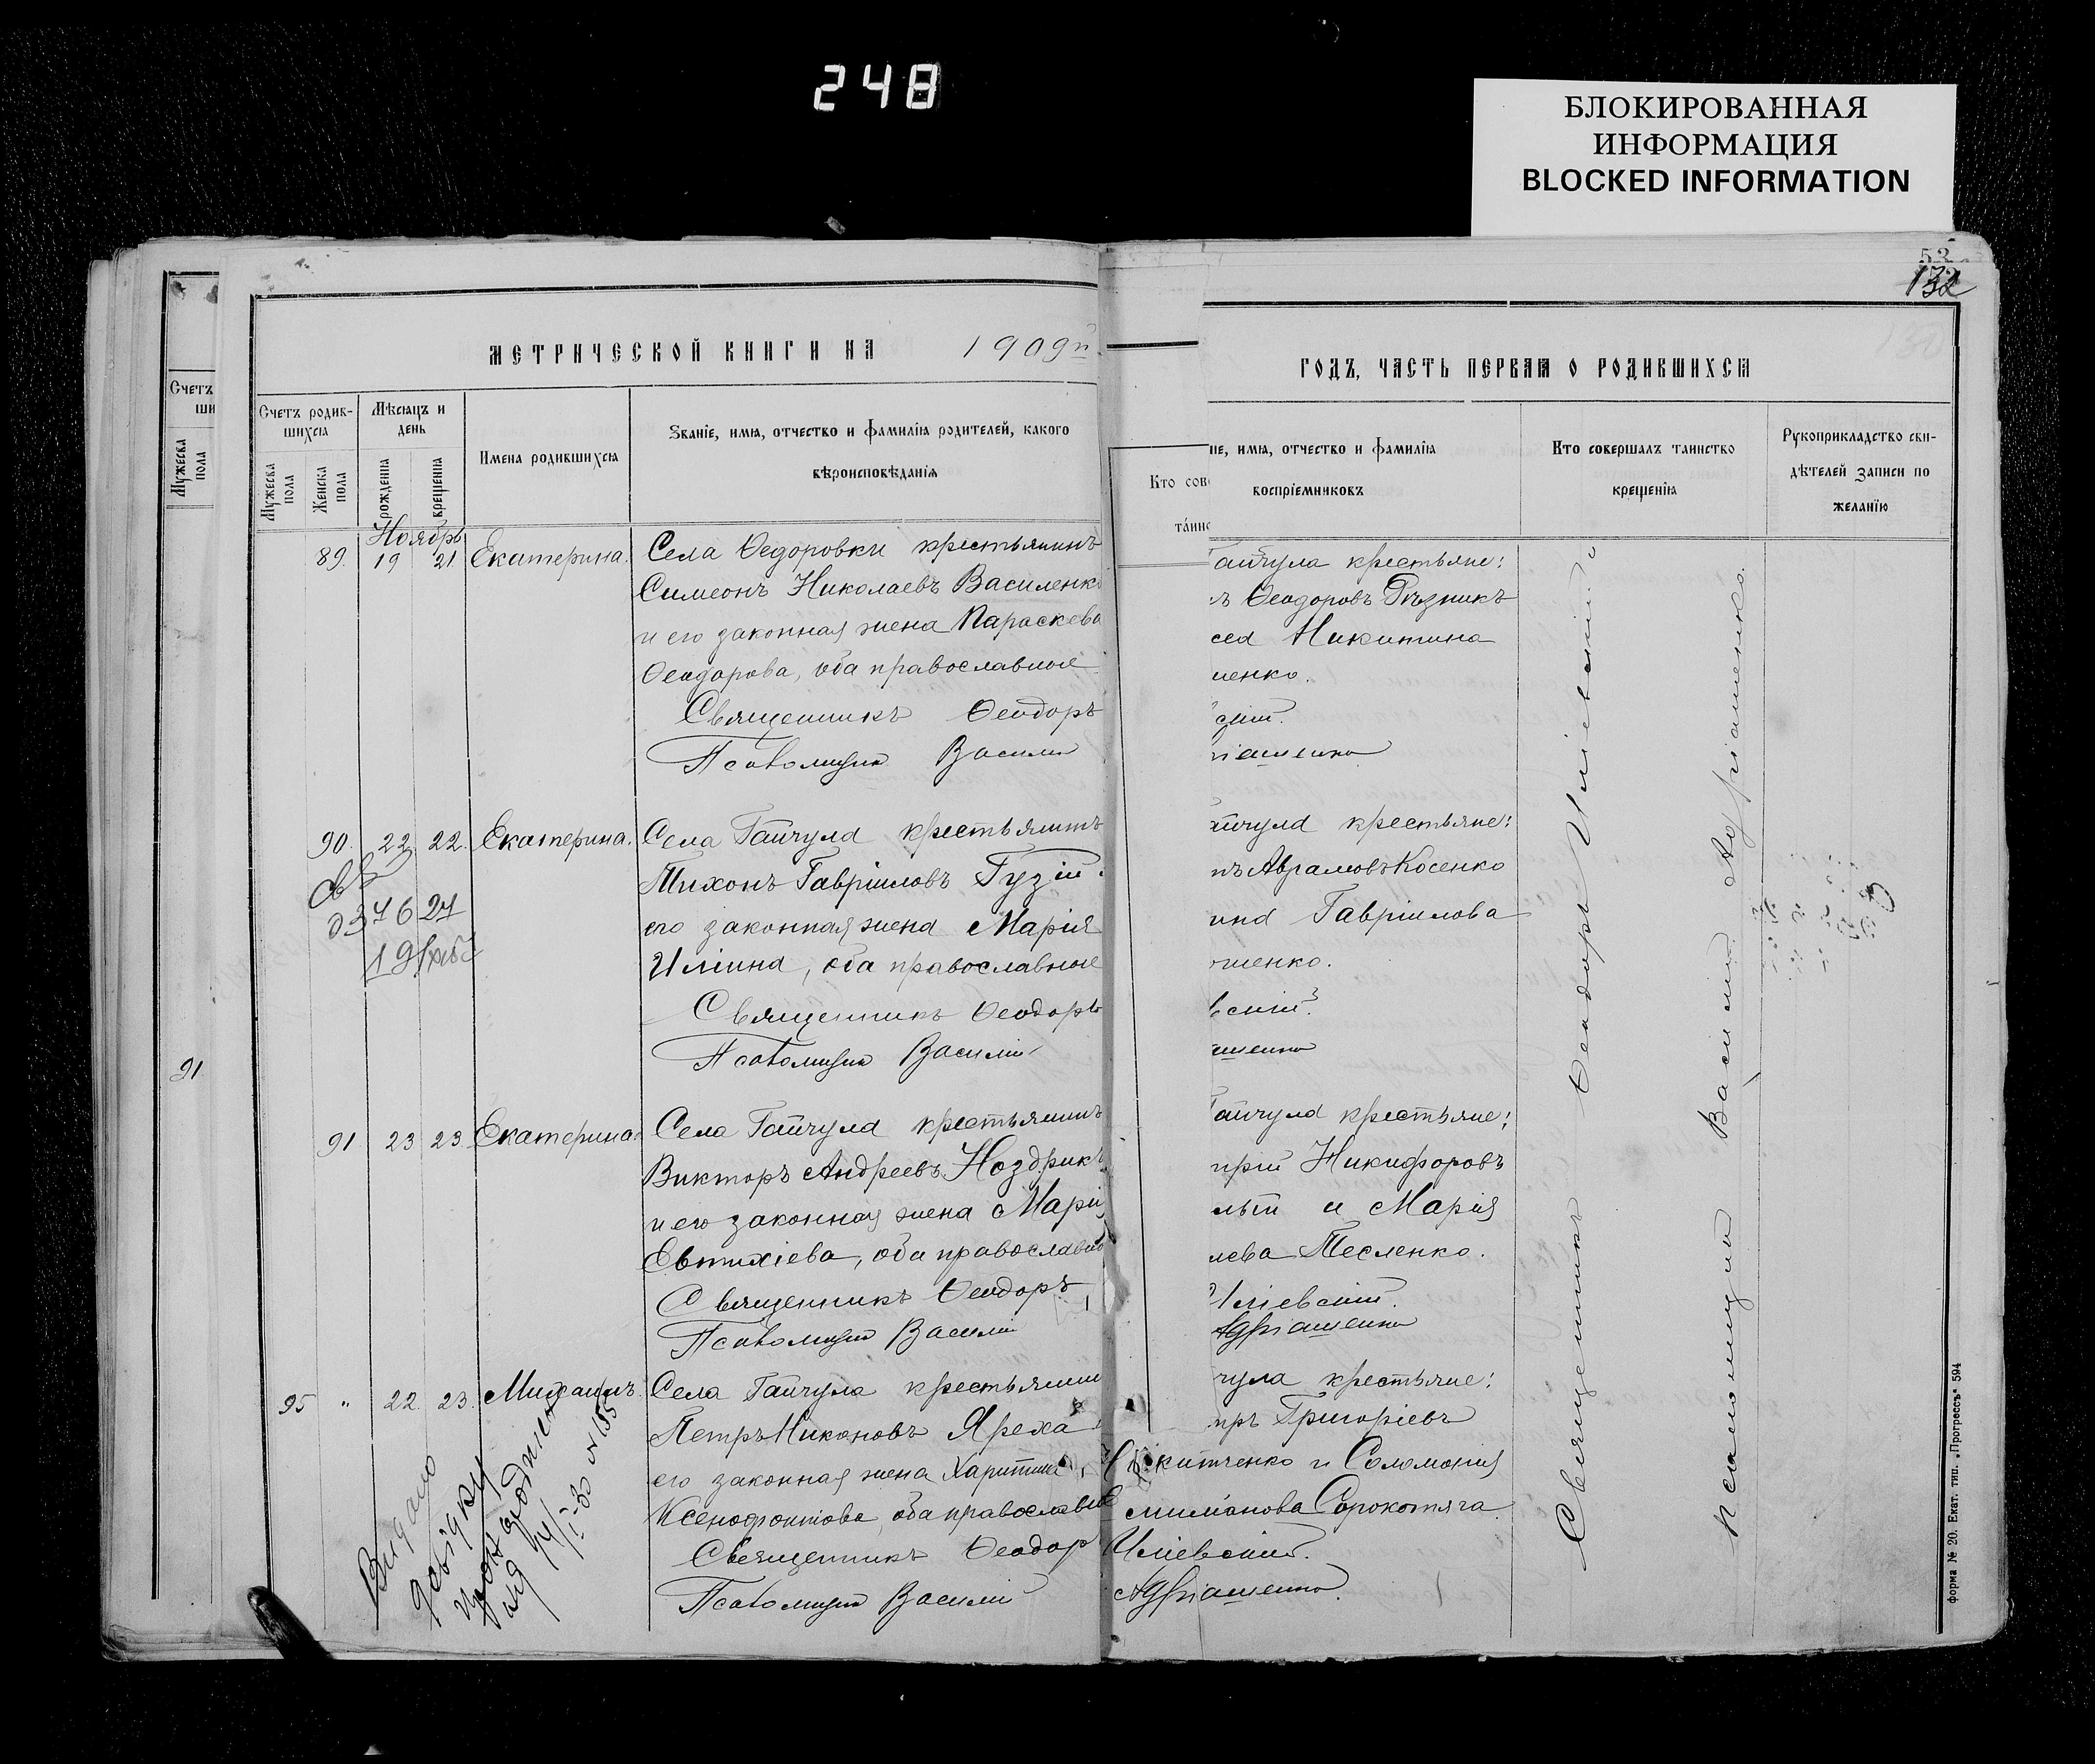 248
БЛОКИРОВАННАЯ
ИНФОРМАЦИЯ
BLOCKED INFORMATION
53
132
МЕТРИЧЕСКОЙ КНИГИ НА 1909й
ГОДЪ, ЧАСТЬ ПЕРВАЯ О РОДИВШИХСЯ
Счетъ
ши
Мужеска пола
91
Счетъ родив-
шихся
Мужеска пола
Женска пола
Мѣсяцъ и
день
рожденія
крещенія
Имена родившихся
Званіе, имя, отчество и фамилія родителей, какого
вѣроисповѣданія
Кто сов
таинс
іе, имя, отчество и фамилія
воспріемниковъ
Кто совершалъ таинство
крещенія
Рукоприкладство сви-
дѣтелей записи по
желанію
Ноябрь
89. 19 21 Екатерина. Села Ѳедоровки крестьянинъ
Симеонъ Николаевъ Василенко
и его законная жена Параскева
Ѳеодорова, оба православные
Священникъ Ѳеодоръ
Псаломщикъ Василій
айчула крестьяне:
ъ Ѳеодоровъ Рѣзникъ
сея Никитина
ленко.
скій.
іашенко
90. 22 22. Екатерина. Села Гайчула крестьянинъ
Тихонъ Гавріиловъ Гузій
его законная жена Марія
Иліина, оба православные
Священникъ Ѳеодоръ
Псаломщикъ Василій
айчула крестьяне:
нъ Аврамовъ Косенко
ина Гавріилова
шенко.
вскій.
ашенко
91 23 23 Екатерина. Села Гайчула крестьянинъ
Викторъ Андреевъ Ноздрикъ
и его законная жена Марія
Евтихіева, оба православно
Священникъ Ѳеодоръ
Псаломщикъ Василій
айчула крестьяне:
трій Никифоровъ
лый и Марія
лева Тесленко.
Иліевскій.
Адріашенко
95 " 22. 23. Михаилъ. Села Гайчула крестьянин
Петръ Никоновъ Яреха
его законная жена Харитина
Ксенофонтова, оба православные
Священникъ Ѳеодор
Псаломщикъ Василій
чула крестьяне:
тръ Григоріевъ
китченко и Соломонія
миліанова Сорокотяга.
Иліевскій.
Адріашенко.
Видано
довідку
Священникъ Ѳеодоръ Иліевскій
Псаломщикъ Василій Адріашенко.
форма № 20. Екат. тип. „Прогрессъ" 594